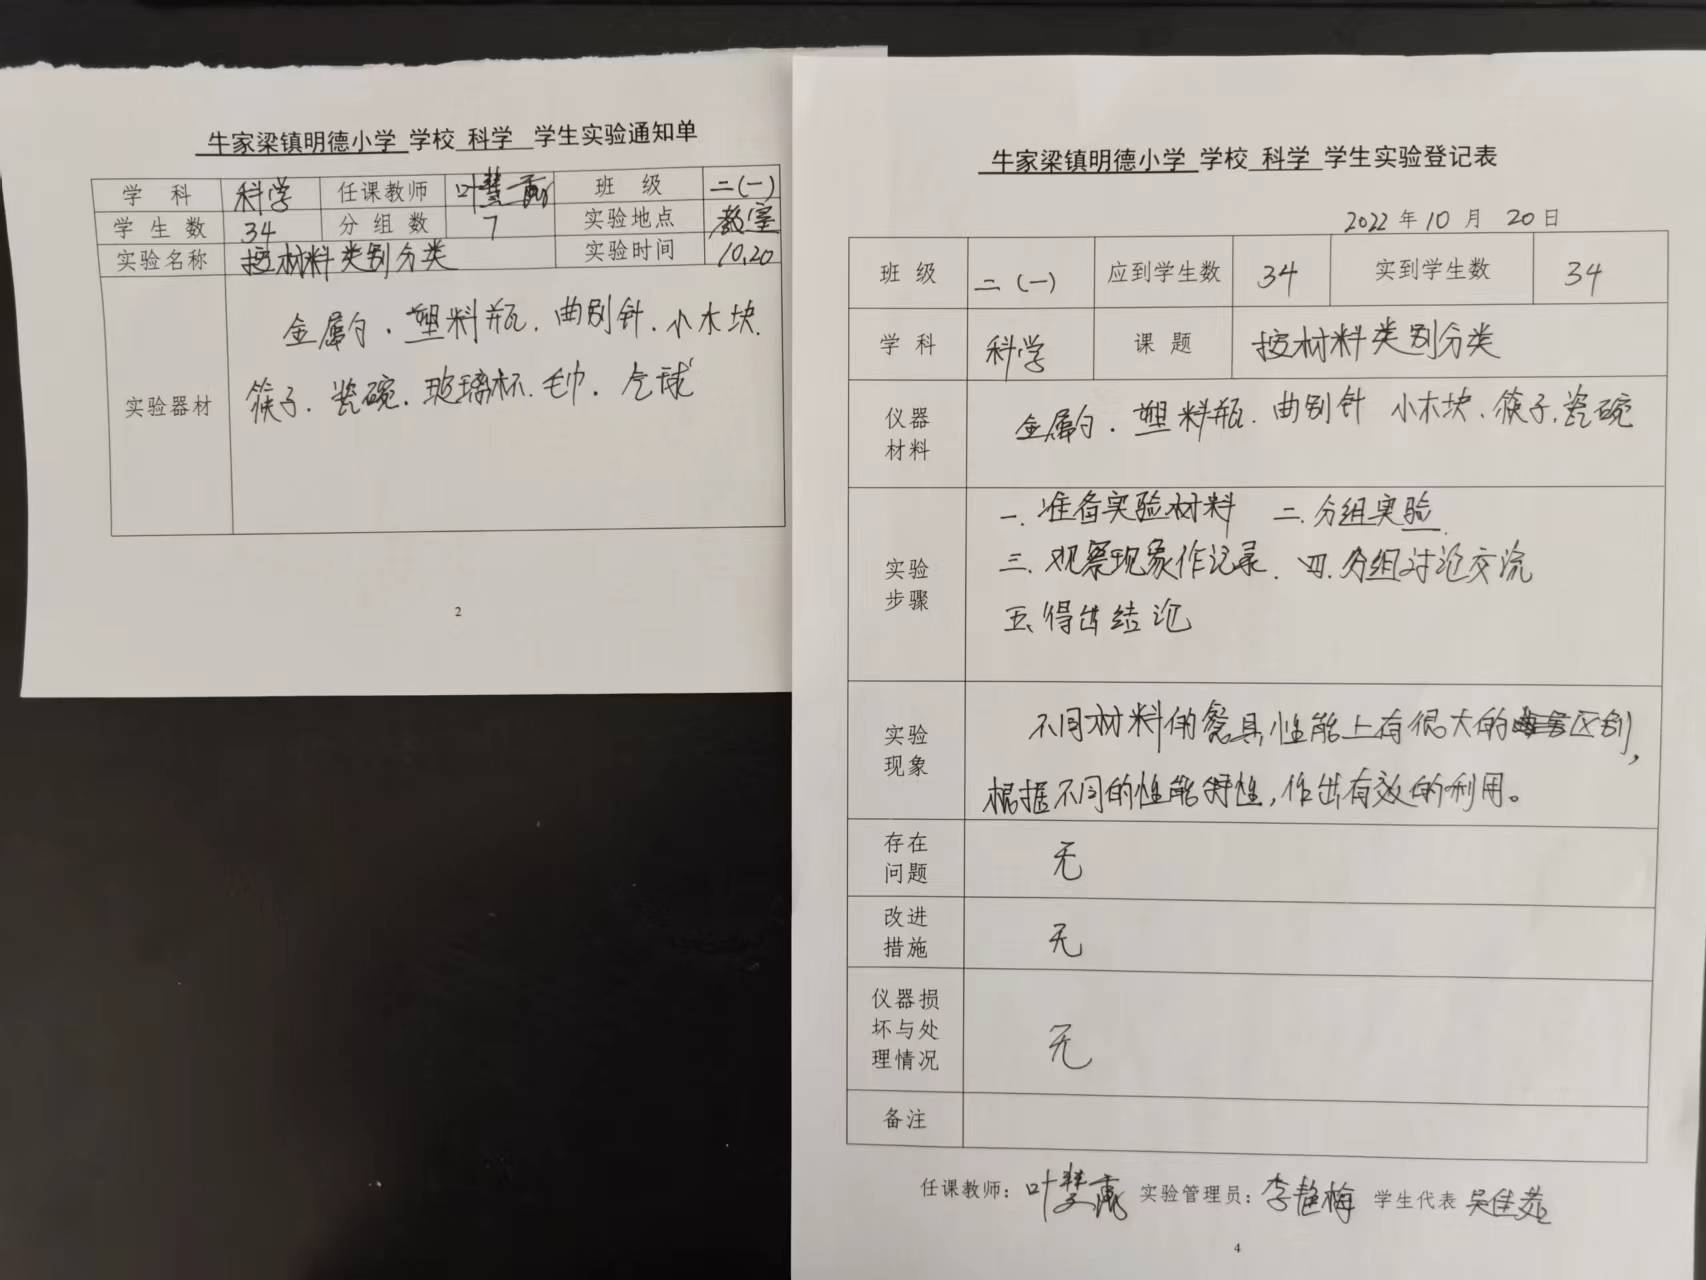 牛家梁镇明德小学 学校 科学 学生实验通知单
学科 科学 任课教师 班级 二(一)
学生数 34 分组数 7 实验地点 教室
实验名称 按材料类别分类 实验时间 10.20
实验器材 金属勺.塑料瓶.曲别针.小木块.
筷子.瓷碗.玻璃杯.毛巾.气球
2
牛家梁镇明德小学 学校 科学 学生实验登记表
2022年10月20日
班级 二(一) 应到学生数 34 实到学生数 34
学科 科学 课题 按材料类别分类
仪器材料 金属勺.塑料瓶.曲别针 小木块.筷子.瓷碗
实验步骤 一.准备实验材料 二.分组实验.
三.观察现象作记录.四.分组讨论交流
五、得出结论
实验现象 不同材料的餐具,性能上有很大的区别,
根据不同的性能特性,作出有效的利用。
存在问题 无
改进措施 无
仪器损坏与处理情况 无
备注
任课教师: 实验管理员:李艳梅 学生代表
4